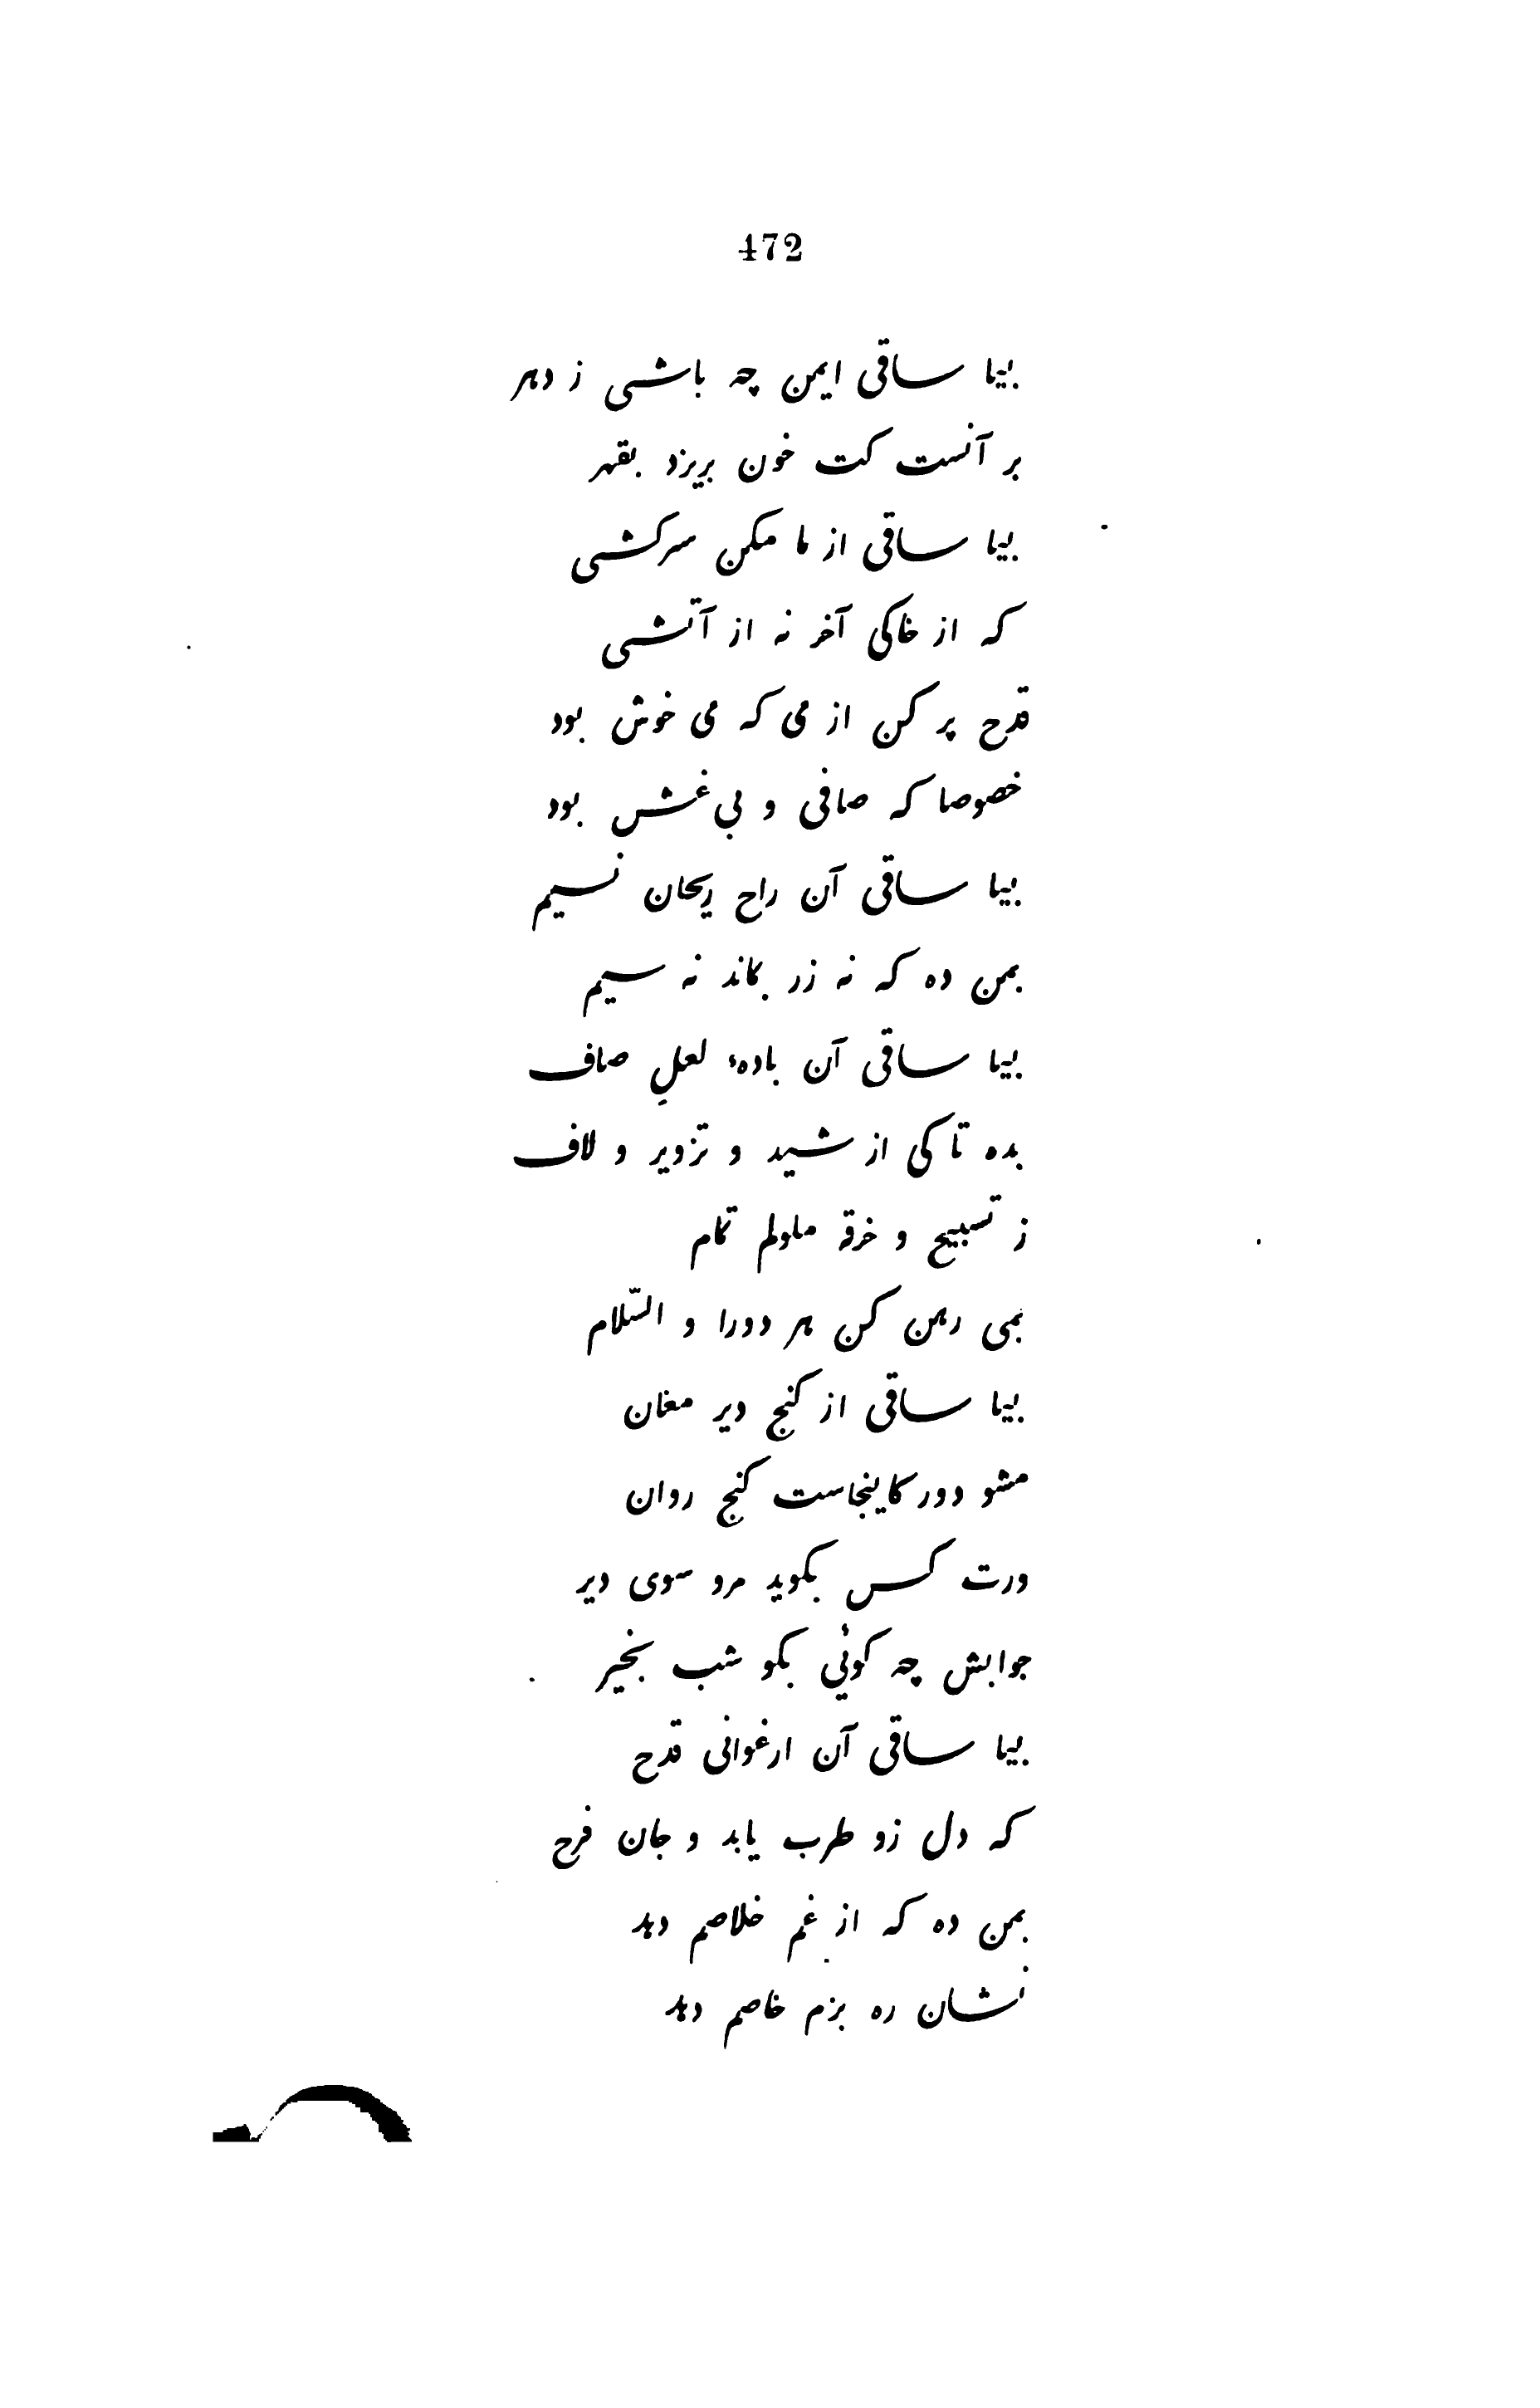 472
بیا ساقی ایمن چه باشی ز دهر
بر آنست کت خون بریزد بقهر
بیا ساقی از ما مکن سرکشی
که از خاکی آخر نه از آتشی
قدح پر کن از می که می خوش بود
خصوصا که صافی و بی غش بود
بیا ساقی آن راح ریحان نسیم
بمن ده که نه زر بماند نه سیم
بیا ساقی آن بادهٔ لعلِ صاف
بده تا کی از شید و تزویر و لاف
ز تسبیح و خرقه ملولم تمام
بمی رهن کن هر دورا و السّلام
بیا ساقی از کنج دیر مغان
مشو دور کاینجاست کنج روان
ورت کس بکوید مرو سوی دیر
جوابش چه کوئی بکو شب بخیر
بیا ساقی آن ارغوانی قدح
که دل زو طرب یابد و جان فرح
بمن ده که از غم خلاصم دهد
نشان ره بزم خاصم دهد